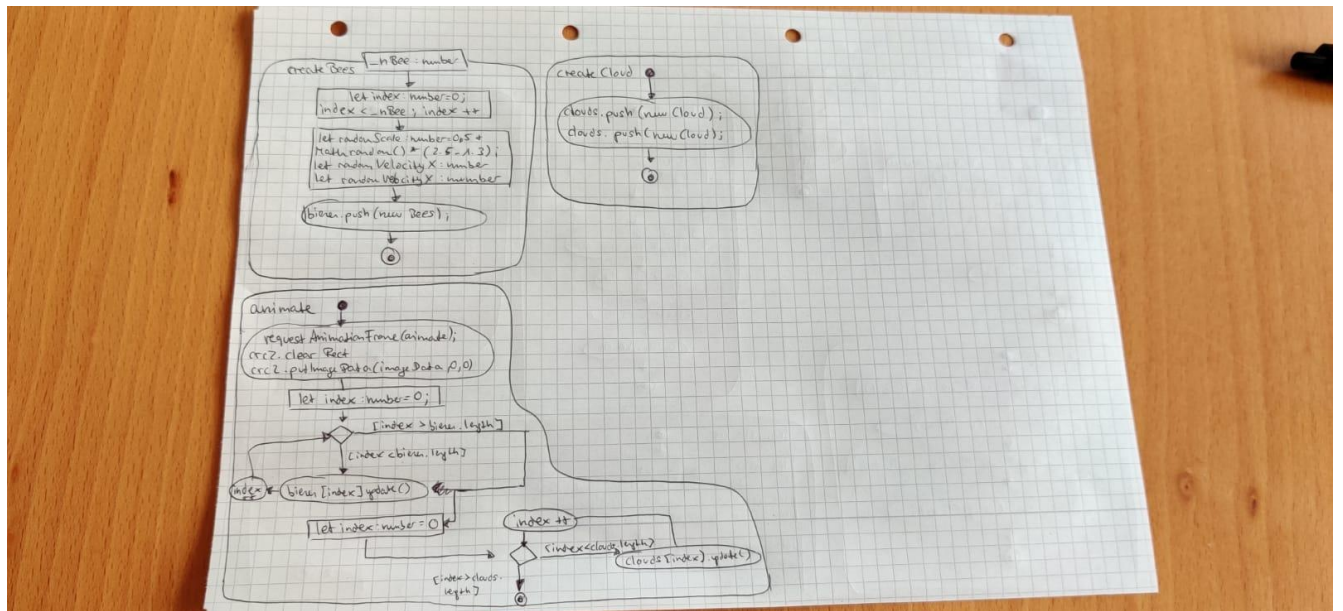 createBees
_nBee : number
let index : number = 0;
index < _nBee ; index ++
let radomScale : number = 0,5 +
Math.random() * (2.5 - 1.3);
let radomVelocityX : number
let randomVelocityX : number
bienen.push(new Bees);
create Cloud
clouds.push(new Cloud);
clouds.push(new Cloud);
animate
requestAnimationFrame(animate);
crc2.clear Rect
crc2.putImageData(imageData, 0,0)
let index : number = 0;
[index > bienen.length]
[index < bienen.length]
index
bienen [index] update()
let index : number = 0
index ++
[index < clouds.length]
clouds [index].update()
[index > clouds.
length]